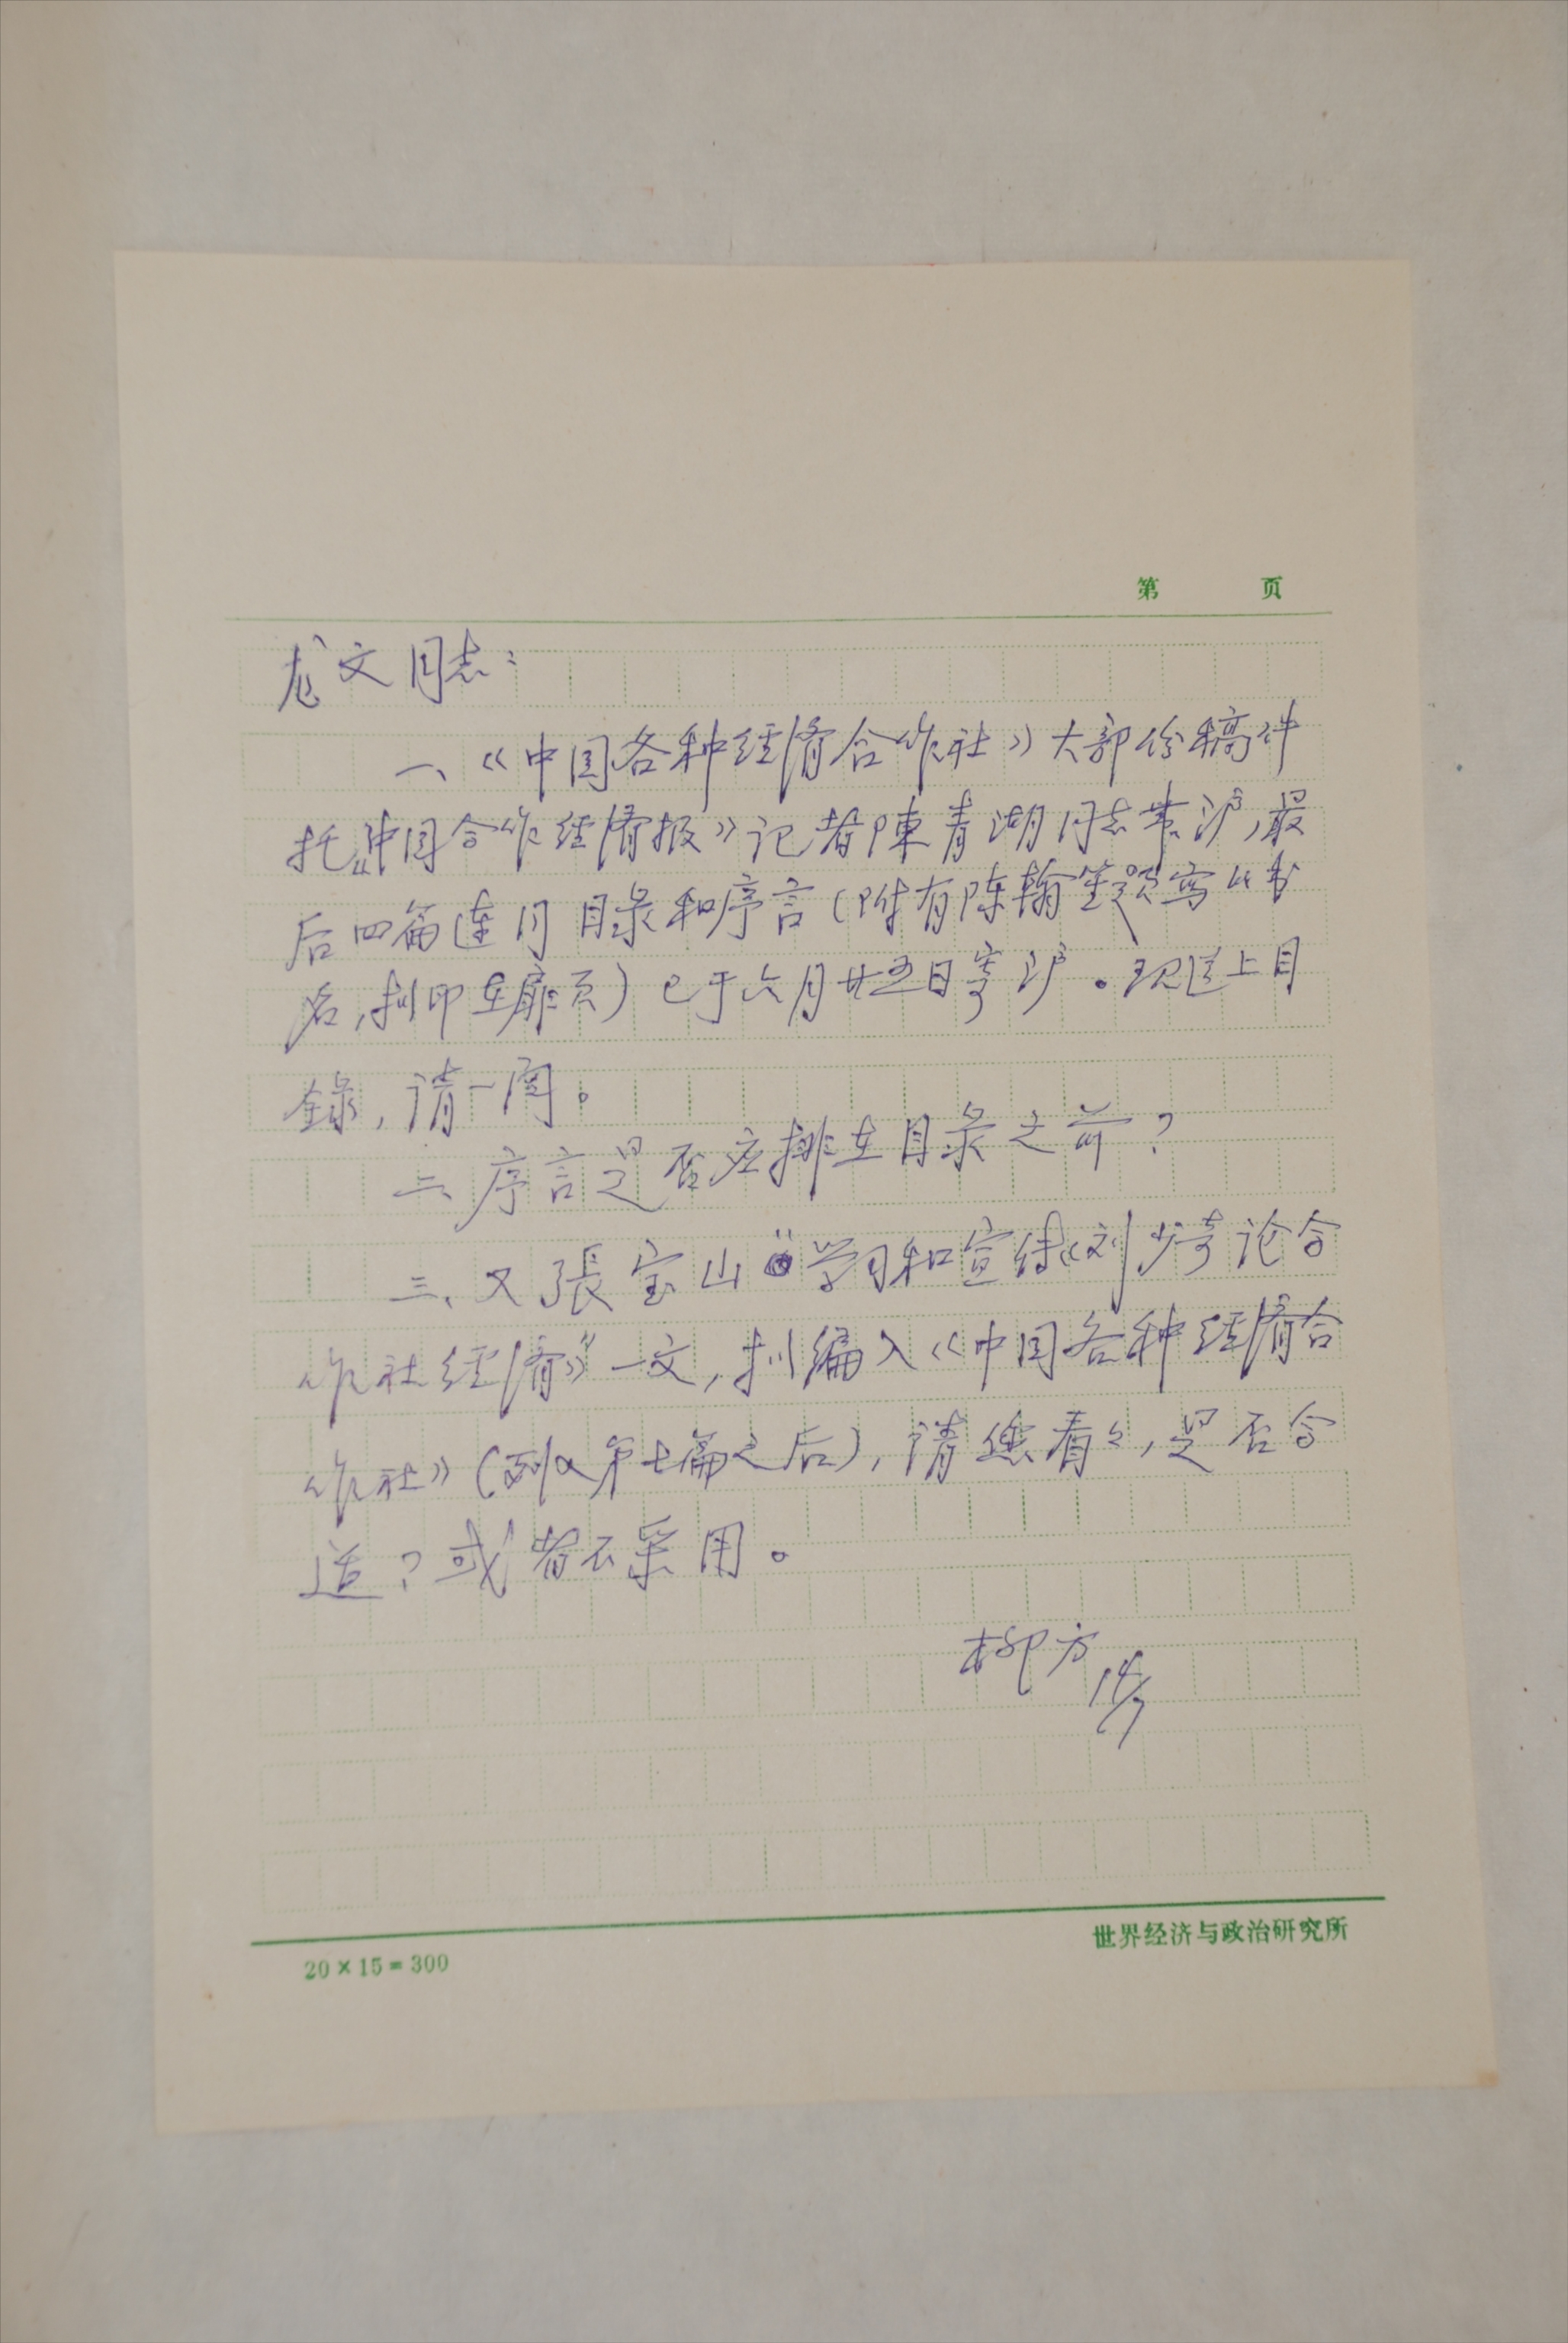 第 页
龙文同志:
一、《中国各种经济合作社》大部份稿件
托《中国合作经济报》记者陳青湖同志带沪,最
后四篇连同目录和序言(附有陈翰笙题写的书
名,拟印在扉页)已于六月廿五日寄沪。现送上目
録,请一阅。
二、序言是否应排在目录之前?
三、又張宝山“学习和宣传《刘少奇论合
作社经济》”一文,拟编入《中国各种经济合
作社》(列入第七篇之后),请您看々,是否合
适?或者不采用。
柳方 14/7
20×15=300
世界经济与政治研究所